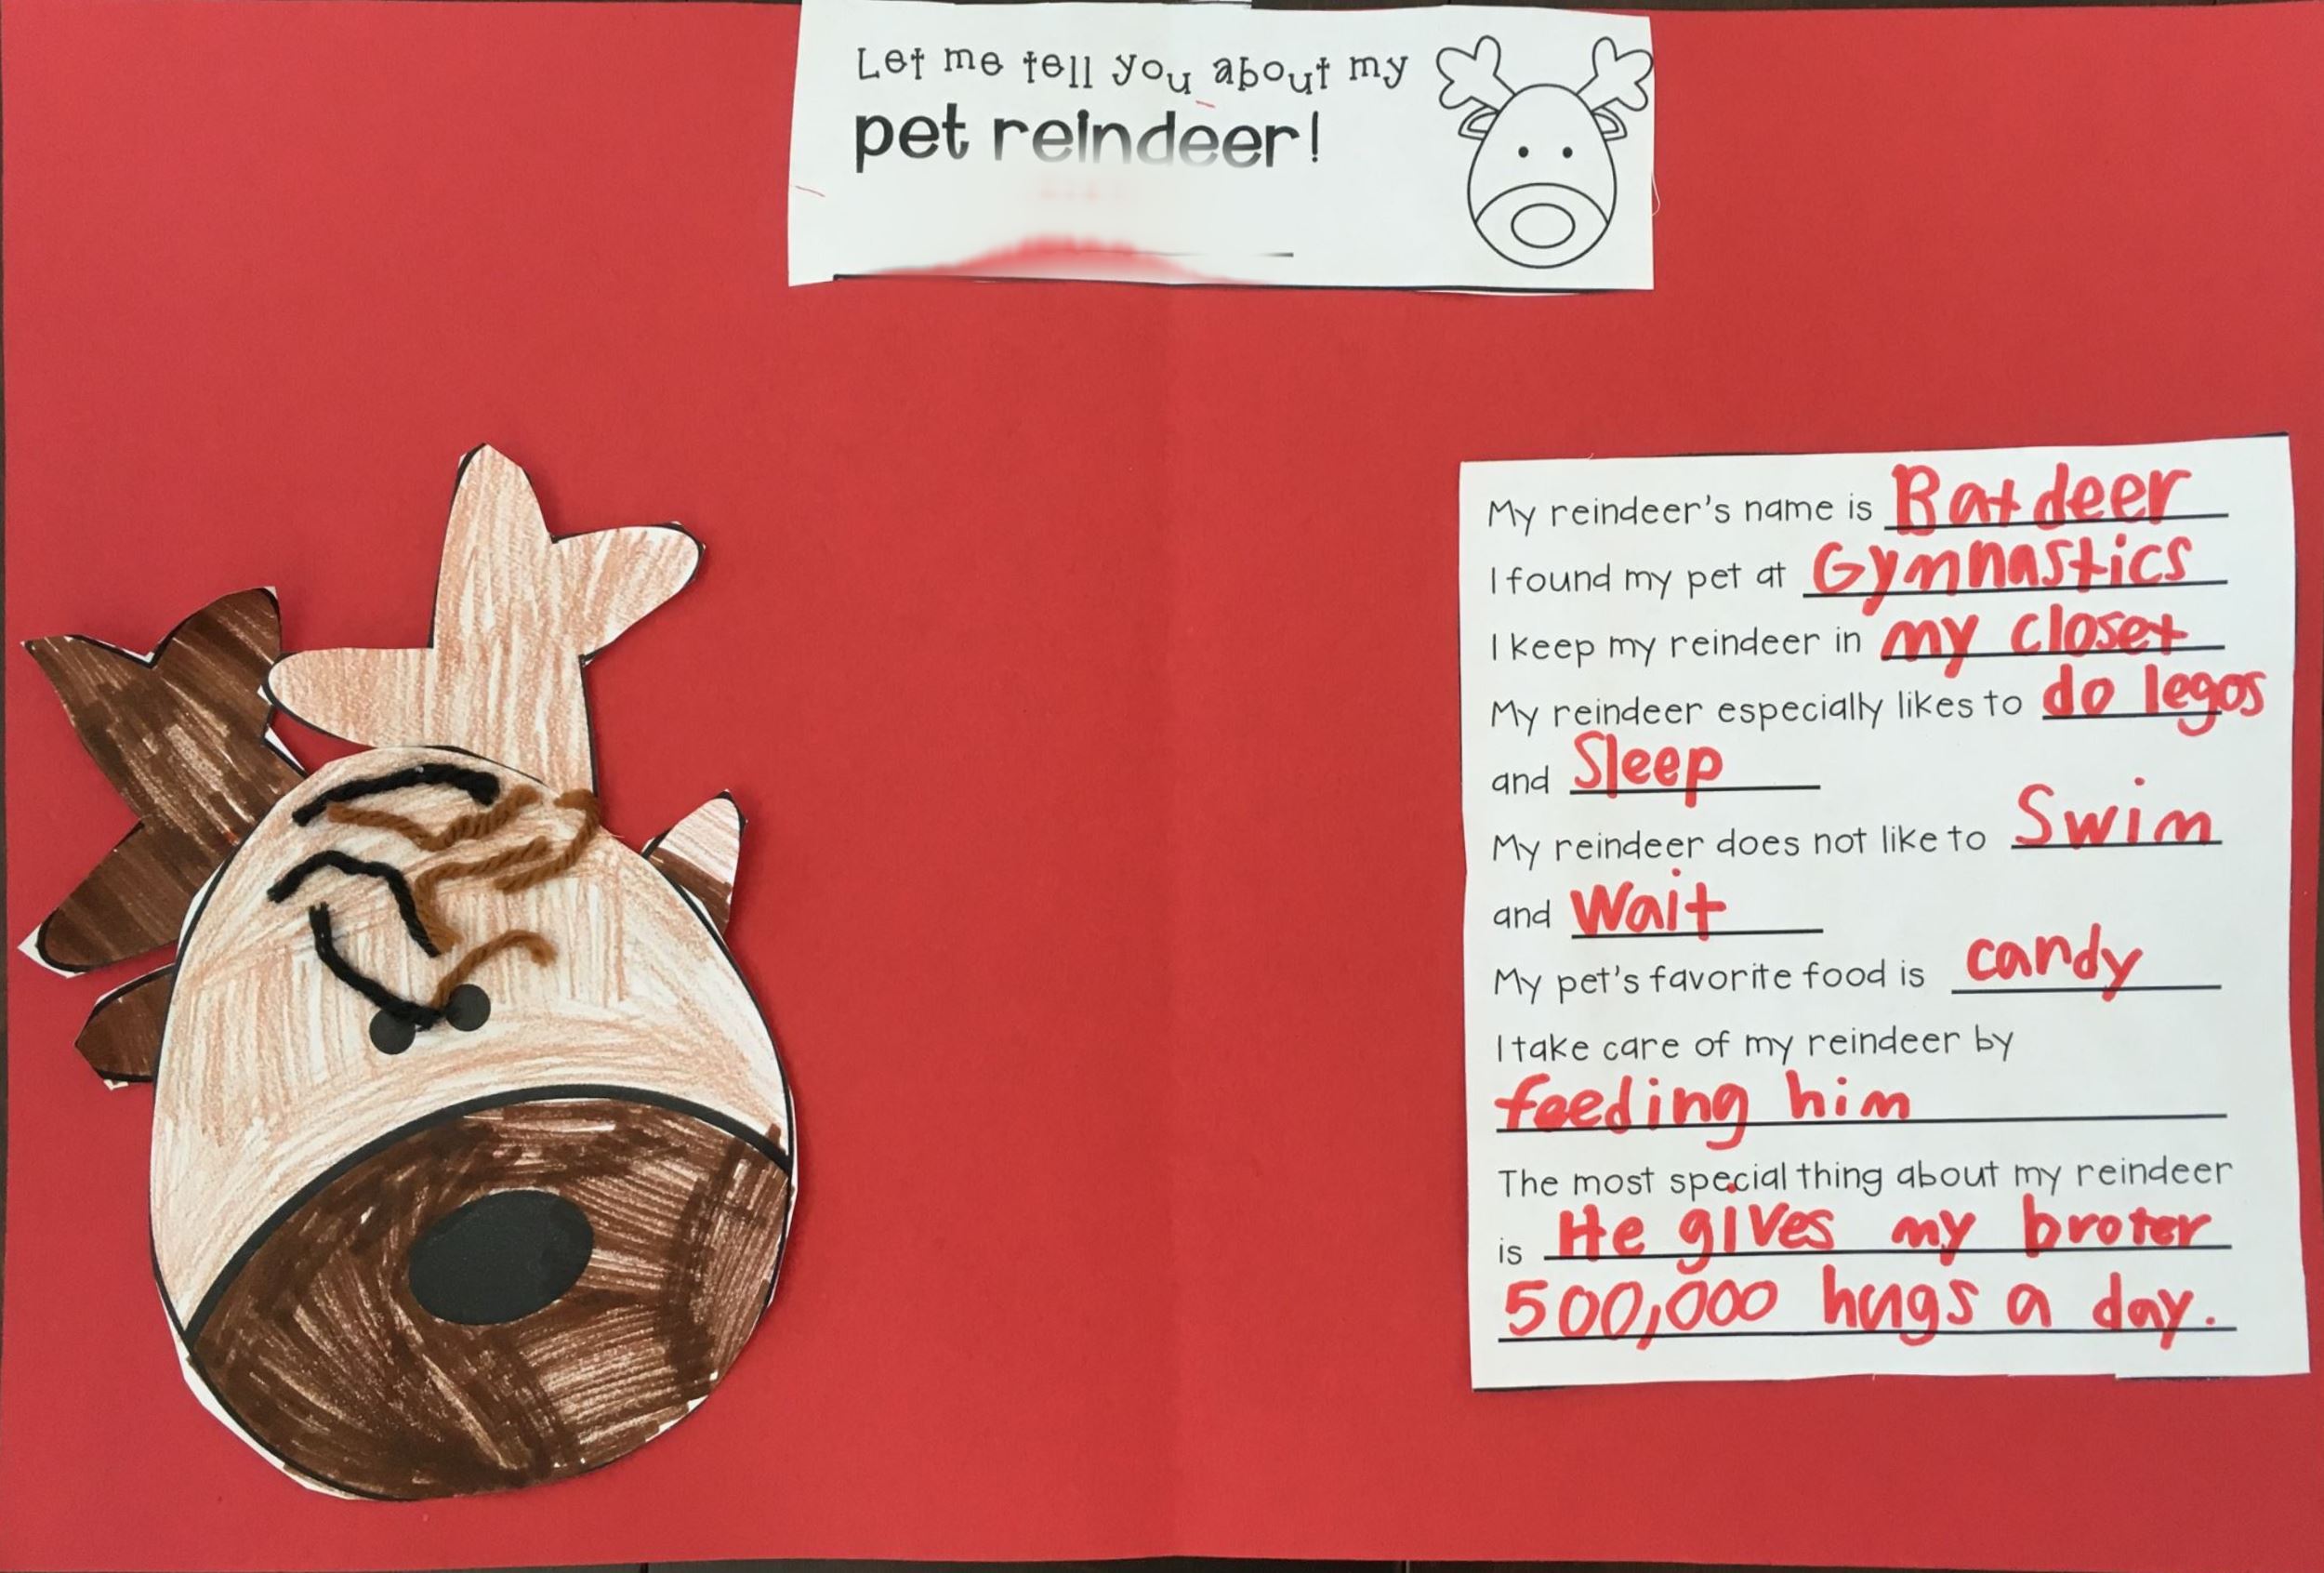 Let me tell you about my
pet reindeer!
My reindeer's name is Batdeer
I found my pet at Gymnastics
I keep my reindeer in my closet
My reindeer especially likes to do legos
and Sleep
My reindeer does not like to Swim
and Wait
My pet's favorite food is candy
I take care of my reindeer by
feeding him
The most special thing about my reindeer
is He gives my broter
500,000 hugs a day.